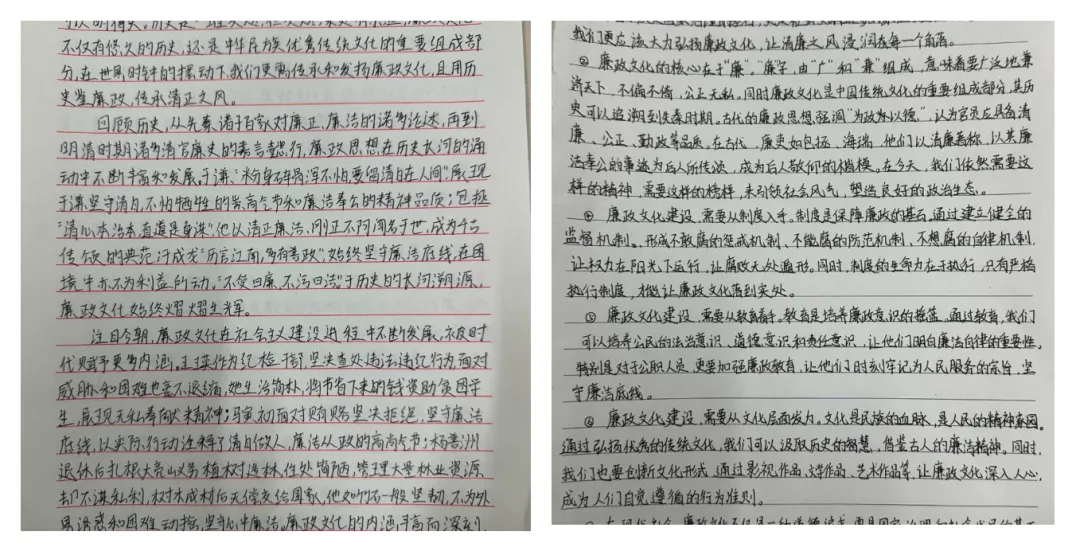 不仅有悠久的历史,还是中华民族优秀传统文化的重要组成部
分,在世界时针的摆动下,我们更需传承和发扬廉政文化,且用历
史鉴廉政,传承清正之风。
回顾历史,从先秦诸子百家对廉正,廉洁的诸多论述,再到
明清时期诸多清官廉吏的嘉言懿行,廉政思想在历史长河的涌
动中不断丰富和发展,于谦:"粉身碎骨浑不怕要留清白在人间"展现
于谦坚守清白,不怕牺牲的崇高气节和廉洁奉公的精神品质;包拯
"清心本治本直道是身谋"他以清正廉洁,刚正不阿闻名于世,成为千古
传颂的典范;于成龙"历官江南,多有善政"始终坚守廉洁底线,在困
境中亦不为利益所动,"不受曰廉,不污曰洁"于历史的长河溯源,
廉政文化始终熠熠生辉。
注目今朝,廉政文化在社会主义建设进程中不断发展,被时
代赋予更多内涵。王瑛作为纪检干部,坚决查处违法违纪行为,面对
威胁和困难也毫不退缩,她生活简朴,将节省下来的钱资助贫困学
生,展现无私奉献精神;马寅初面对贿赂坚决拒绝,坚守廉洁
底线,以实际行动诠释了清白做人,廉洁从政的高尚气节;杨善洲
退休后扎根大亮山义务植树造林住处简陋,管理大量林业资源
却不谋私利,树木成材后无偿交给国家,他如磐石一般坚韧,不为外
我们更应该大力弘扬廉政文化,让清廉之风浸润在每一个角落。
② 廉政文化的核心在于"廉"。"廉"字,由"广"和"兼"组成,意味着要广泛地兼
济天下,不偏不倚,公正无私。同时廉政文化是中国传统文化的重要组成部分,其历
史可以追溯到先秦时期。古代的廉政思想强调"为政以德",认为官员应具备清
廉、公正、勤政等品质。在古代,廉吏如包拯、海瑞,他们以清廉著称,以其廉
洁奉公的事迹为后人所传颂,成为后人敬仰的楷模。在今天,我们依然需要这
样的精神,需要这样的榜样,来引领社会风气,塑造良好的政治生态。
廉政文化建设,需要从制度入手。制度是保障廉政的基石,通过建立健全的
监督机制。形成不敢腐的惩戒机制、不能腐的防范机制、不想腐的自律机制,
让权力在阳光下运行,让腐败无处遁形。同时,制度的生命力在于执行,只有严格
执行制度,才能让廉政文化落到实处。
廉政文化建设,需要从教育着手。教育是培养廉政意识的摇篮。通过教育,我们
可以培养公民的法治意识、道德意识和责任意识,让他们明白廉洁自律的重要性。
特别是对于公职人员,更要加强廉政教育,让他们时刻牢记为人民服务的宗旨,坚
守廉洁底线。
廉政文化建设,需要从文化层面发力。文化是民族的血脉,是人民的精神家园。
通过弘扬优秀的传统文化,我们可以汲取历史的智慧,借鉴古人的廉洁精神。同时,
我们也要创新文化形式,通过影视作品、文学作品、艺术作品等,让廉政文化深入人心,
成为人们自觉遵循的行为准则。